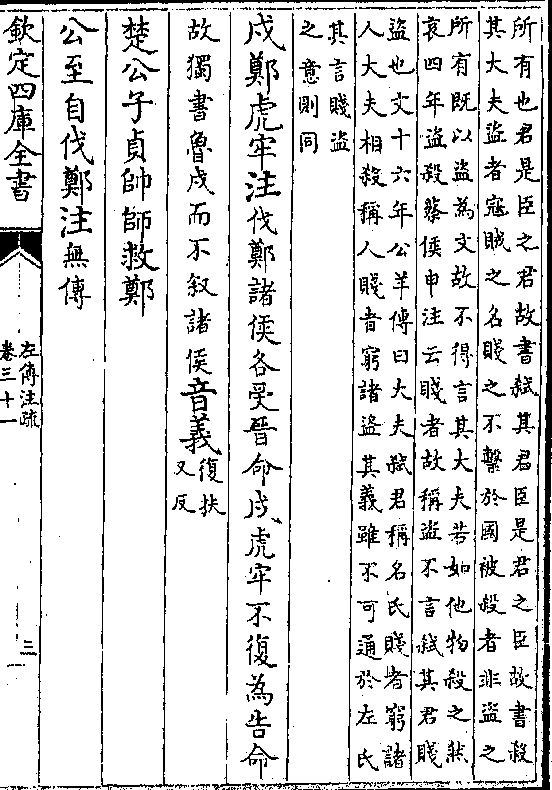 所有也君是臣之君故書弑其君臣是君之臣故書殺
其大夫盜者寇賊之名賤之不繫於國被殺者非盜之
所有既以盜為文故不得言其大夫若如他物殺之然
哀四年盜殺蔡侯申注云賤者故稱盜不言弑其君賤
盜也文十六年公羊傳曰大夫弑君稱名氏賤者窮諸
人大夫相殺稱人賤者窮諸盜其義雖不可通於左氏
其言賤盜
之意則同
戍鄭虎牢注伐鄭諸侯各受晉命戍虎牢不復為告命
故獨書魯戍而不叙諸侯音義復扶
又反
楚公子貞帥師救鄭
公至自伐鄭注無傳
欽定四庫全書
左傳注疏
卷三十一
三